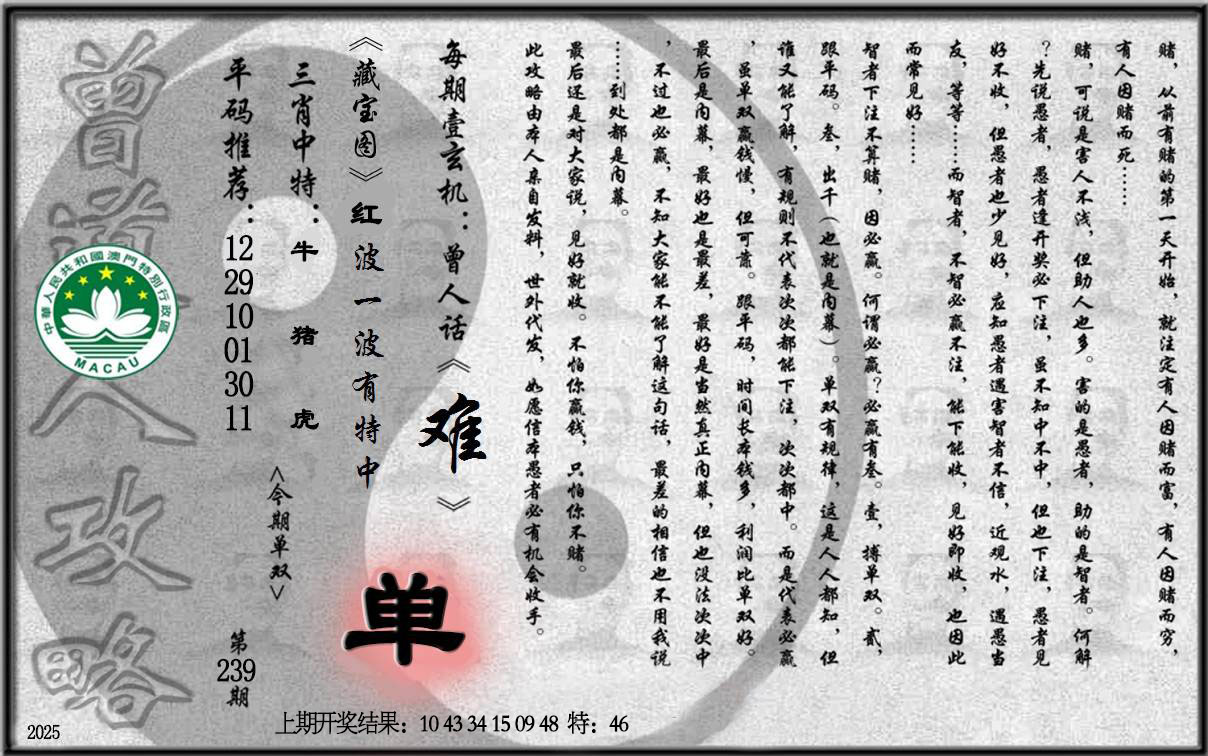 赌，从前有赌的第一天开始，就注定有人因赌而富，有人因赌而穷，
有人因赌而死……
赌，可说是害人不浅，但助人也多。害的是愚者，助的是智者。何解
？先说愚者，愚者逢开奖必下注，虽不知中不中，但也下注，愚者见
好不收，但愚者也少见好，应知愚者遇害智者不信，近观水，遇愚当
友，等等……而智者，不智必赢不注，能下能收，见好即收，也因此
而常见好……
智者下注不算赌，因必赢。何谓必赢？必赢有叁。壹，搏单双。贰，
跟平码。叁，出千（也就是内幕）。单双有规律，这是人人都知，但
谁又能了解，有规则不代表次次都能下注，次次都中。而是代表必赢
，虽单双赢钱慢，但可靠。跟平码，时间长本钱多，利润比单双好。
最后是内幕，最好也是最差，最好是当然真正内幕，但也没法次次中
，不过也必赢，不知大家能不能了解这句话，最差的相信也不用我说
……到处都是内幕。
最后还是对大家说，见好就收。不怕你赢钱，只怕你不赌。
此攻略由本人亲自发料，世外代发，如愿信本愚者必有机会收手。
每期壹玄机：曾人话《难》
《藏宝图》红波一波有特中
单
三肖中特：牛 猪 虎
<今期单双>
平码推荐：12 29 10 01 30 11
第239期
曾道人攻略
中華人民共和國澳門特別行政區
MACAU
上期开奖结果：10 43 34 15 09 48 特：46
2025